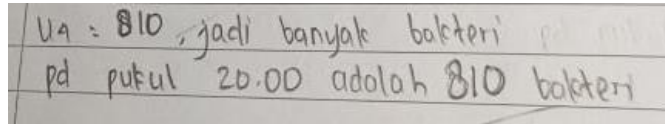 U4 = 810, jadi banyak bakteri
pd pukul 20.00 adalah 810 bakteri